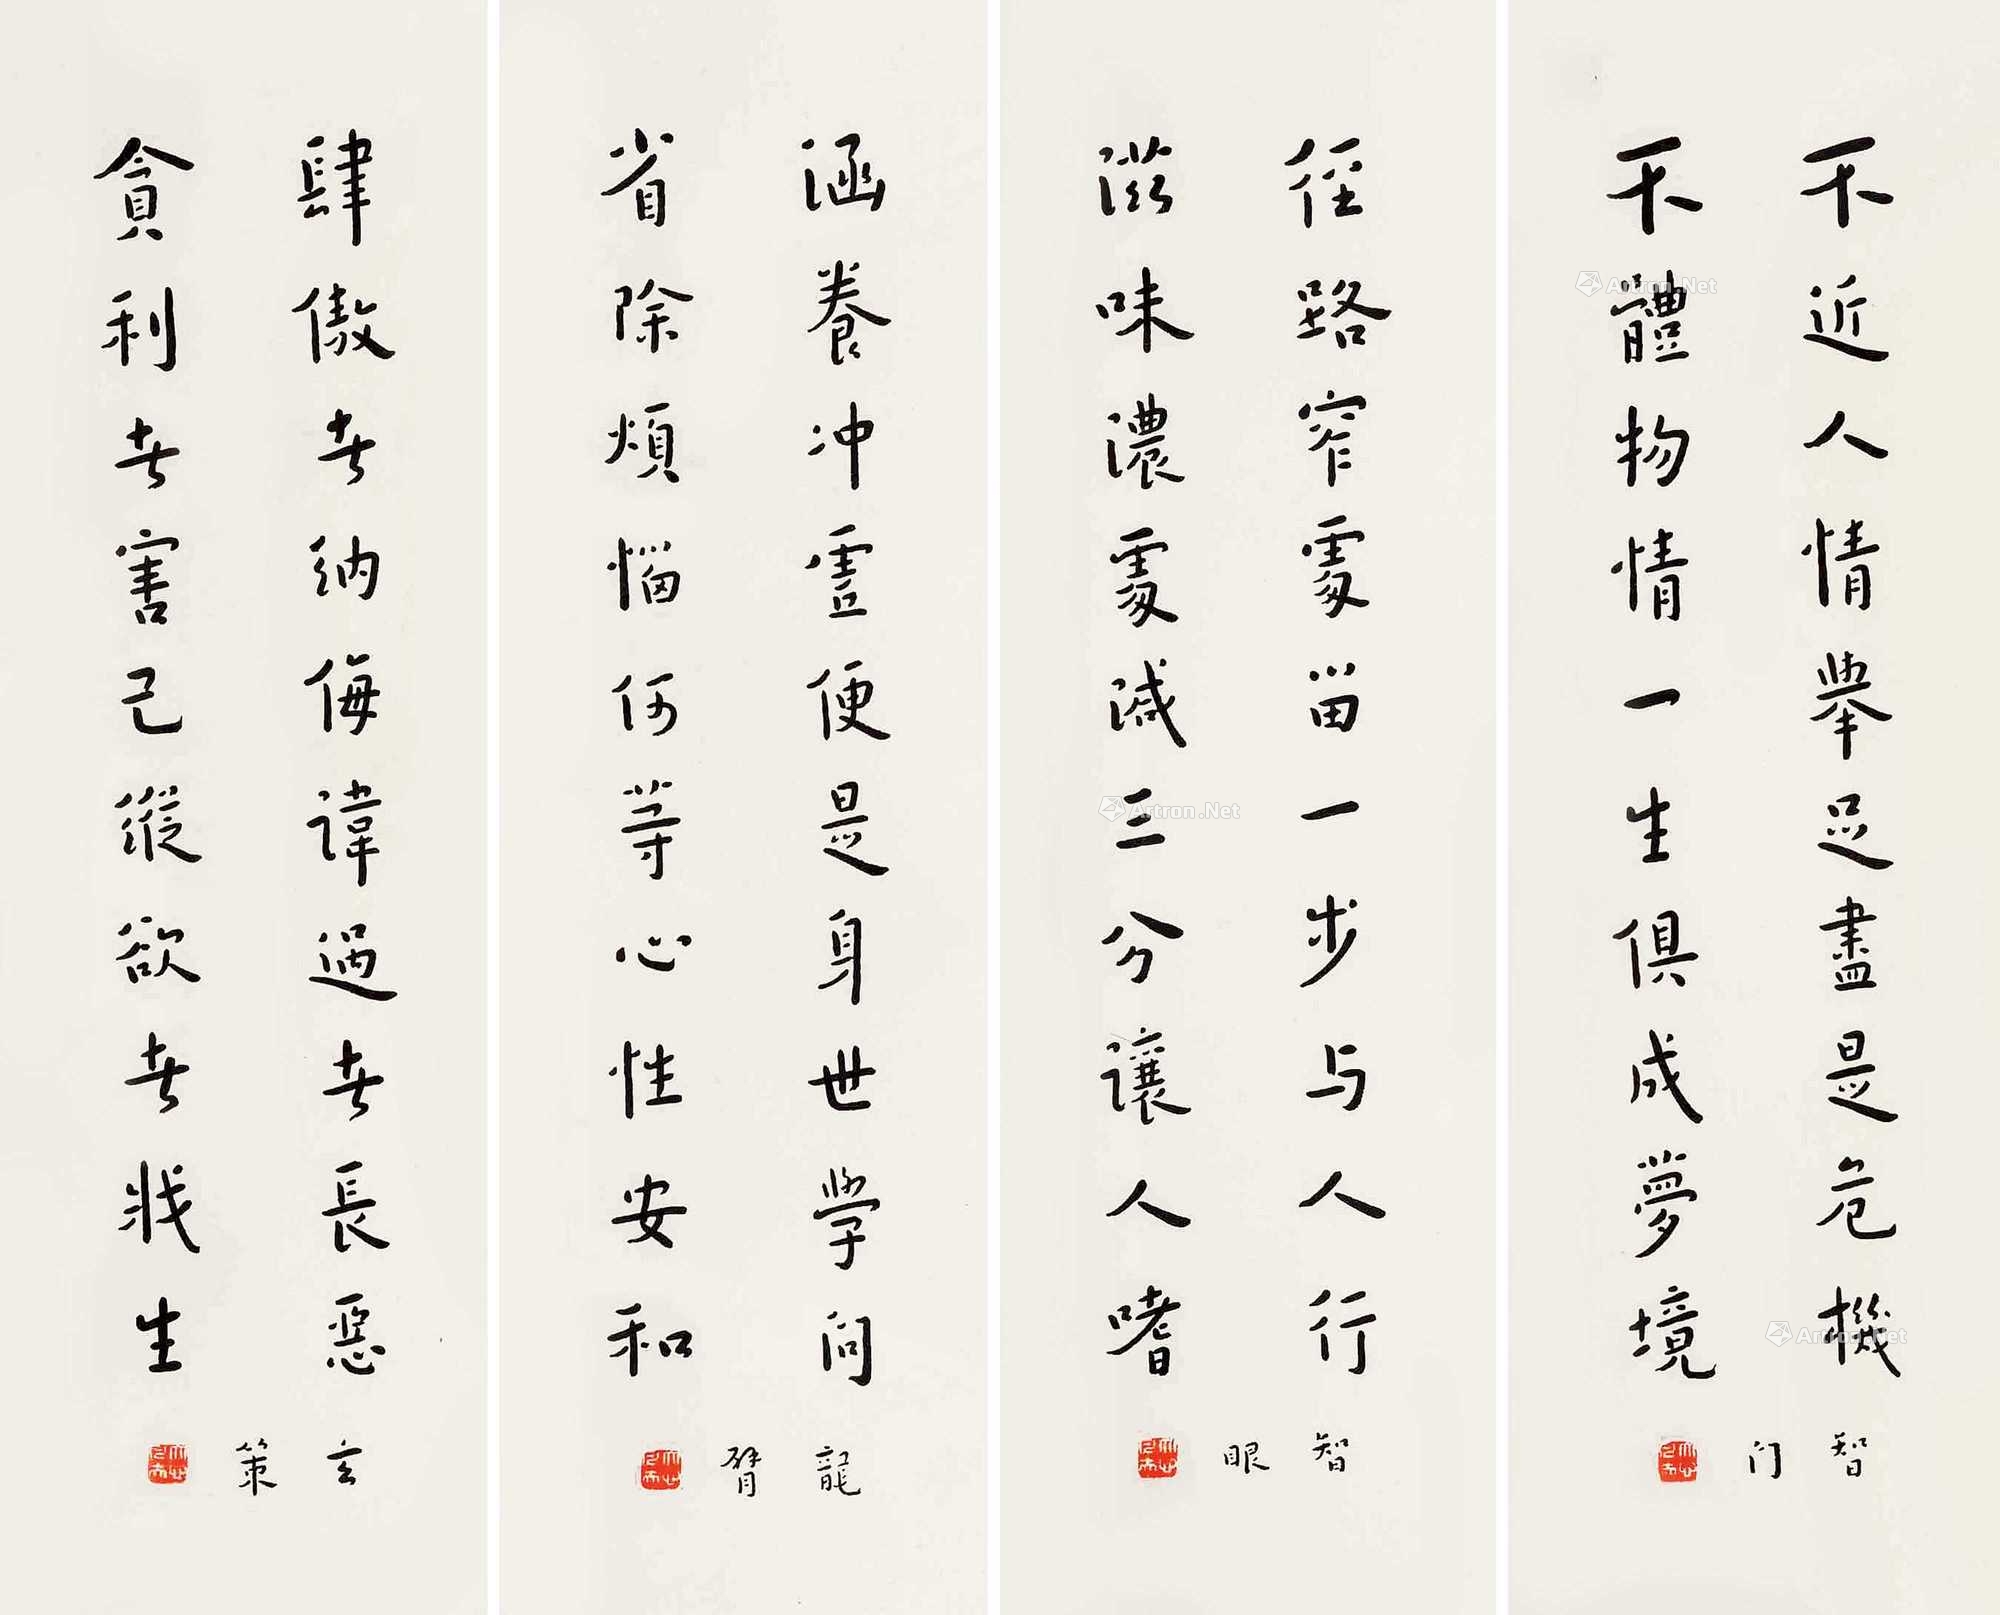 不近人情舉足盡是危機
不體物情一生俱成夢境
智
门
徑路窄處留一步与人行
滋味濃處減三分讓人嗜
智
眼
涵養冲虛便是身世學问
省除煩惱何等心性安和
龍
臂
肆傲者納侮諱過者長惡
貪利者害己縱欲者戕生
玄
策
Artron.Net
Artron.Net
Artron.Net